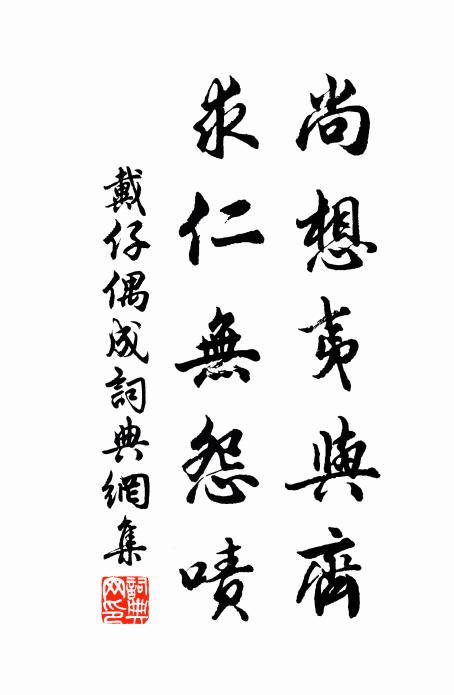 尚想夷與齊
求仁無怨嘖
戴仔偶成詞典網集
詞典网印